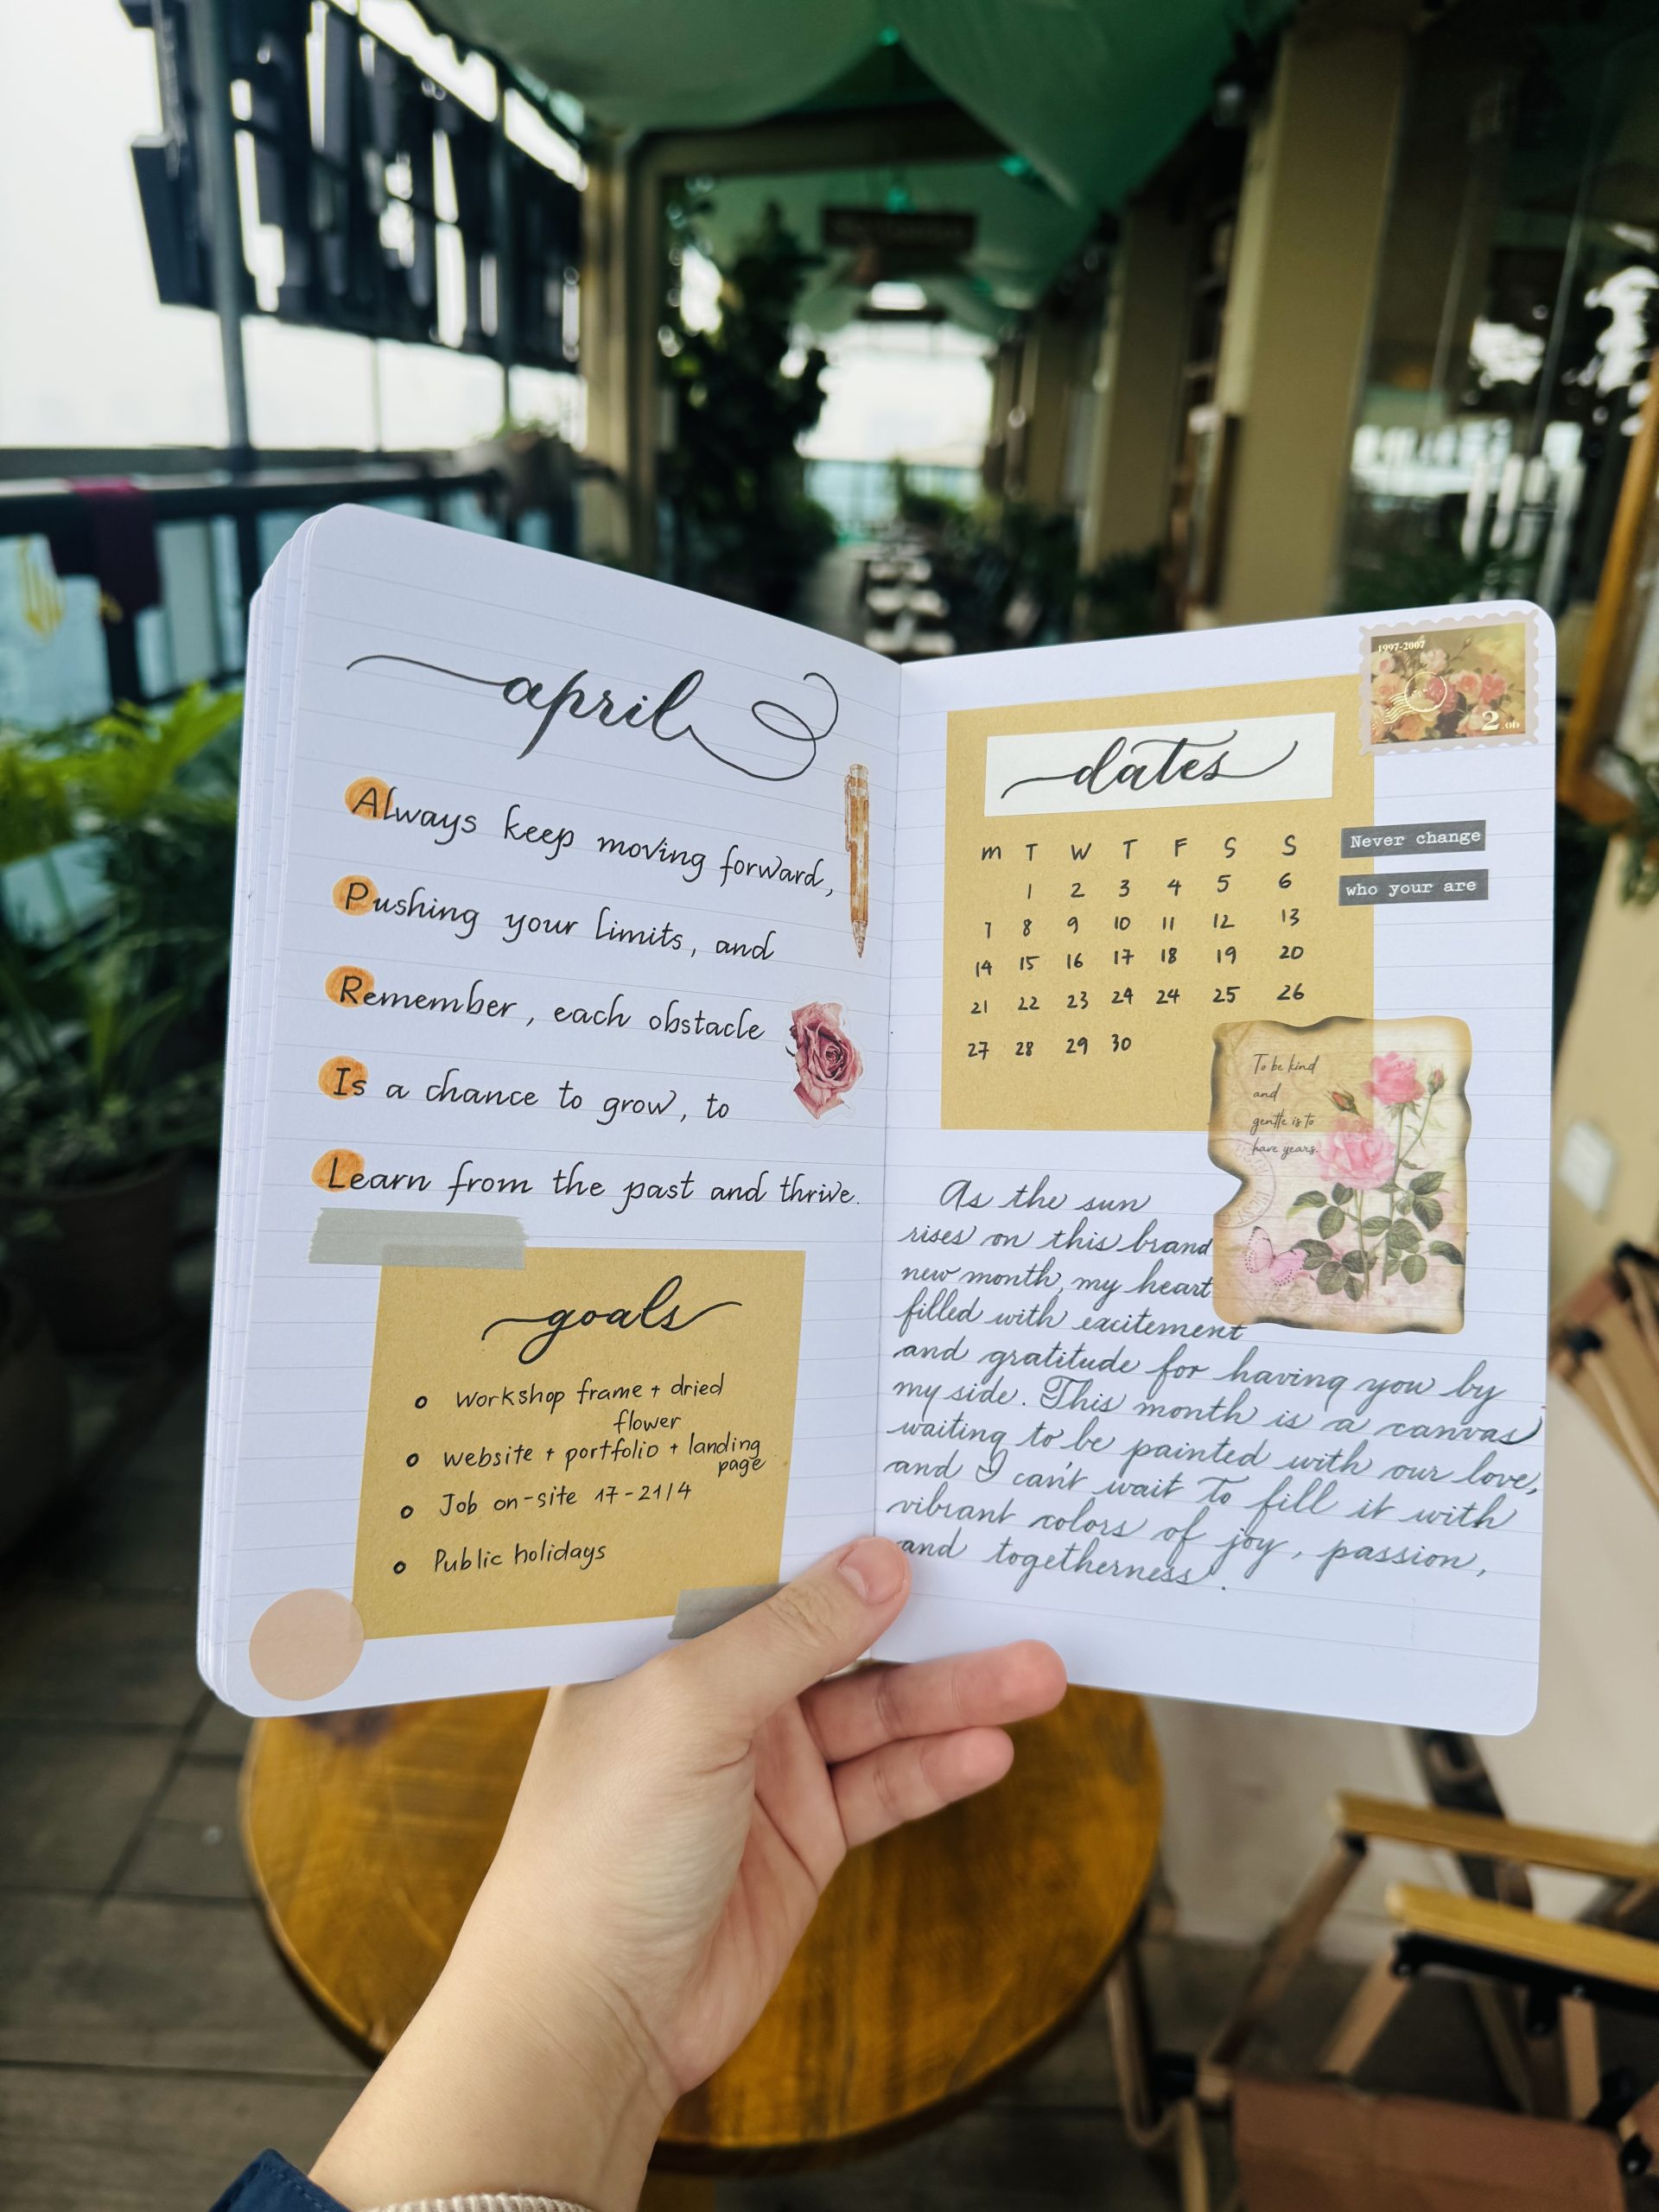 april
Always keep moving forward,
Pushing your limits, and
Remember, each obstacle
Is a chance to grow, to
Learn from the past and thrive.
goals
Workshop frame + dried
flower
website + portfolio + landing
page
Job on-site 17-21/4
Public holidays
1997-2007
2
dates
M T W T F S S
1 2 3 4 5 6
7 8 9 10 11 12 13
14 15 16 17 18 19 20
21 22 23 24 24 25 26
27 28 29 30
Never change
who your are
To be kind
and
gentle is to
have years.
As the sun
rises on this brand
new month, my heart
filled with excitement
and gratitude for having you by
my side. This month is a canvas
waiting to be painted with our love,
and I can't wait to fill it with
vibrant colors of joy, passion,
and togetherness.